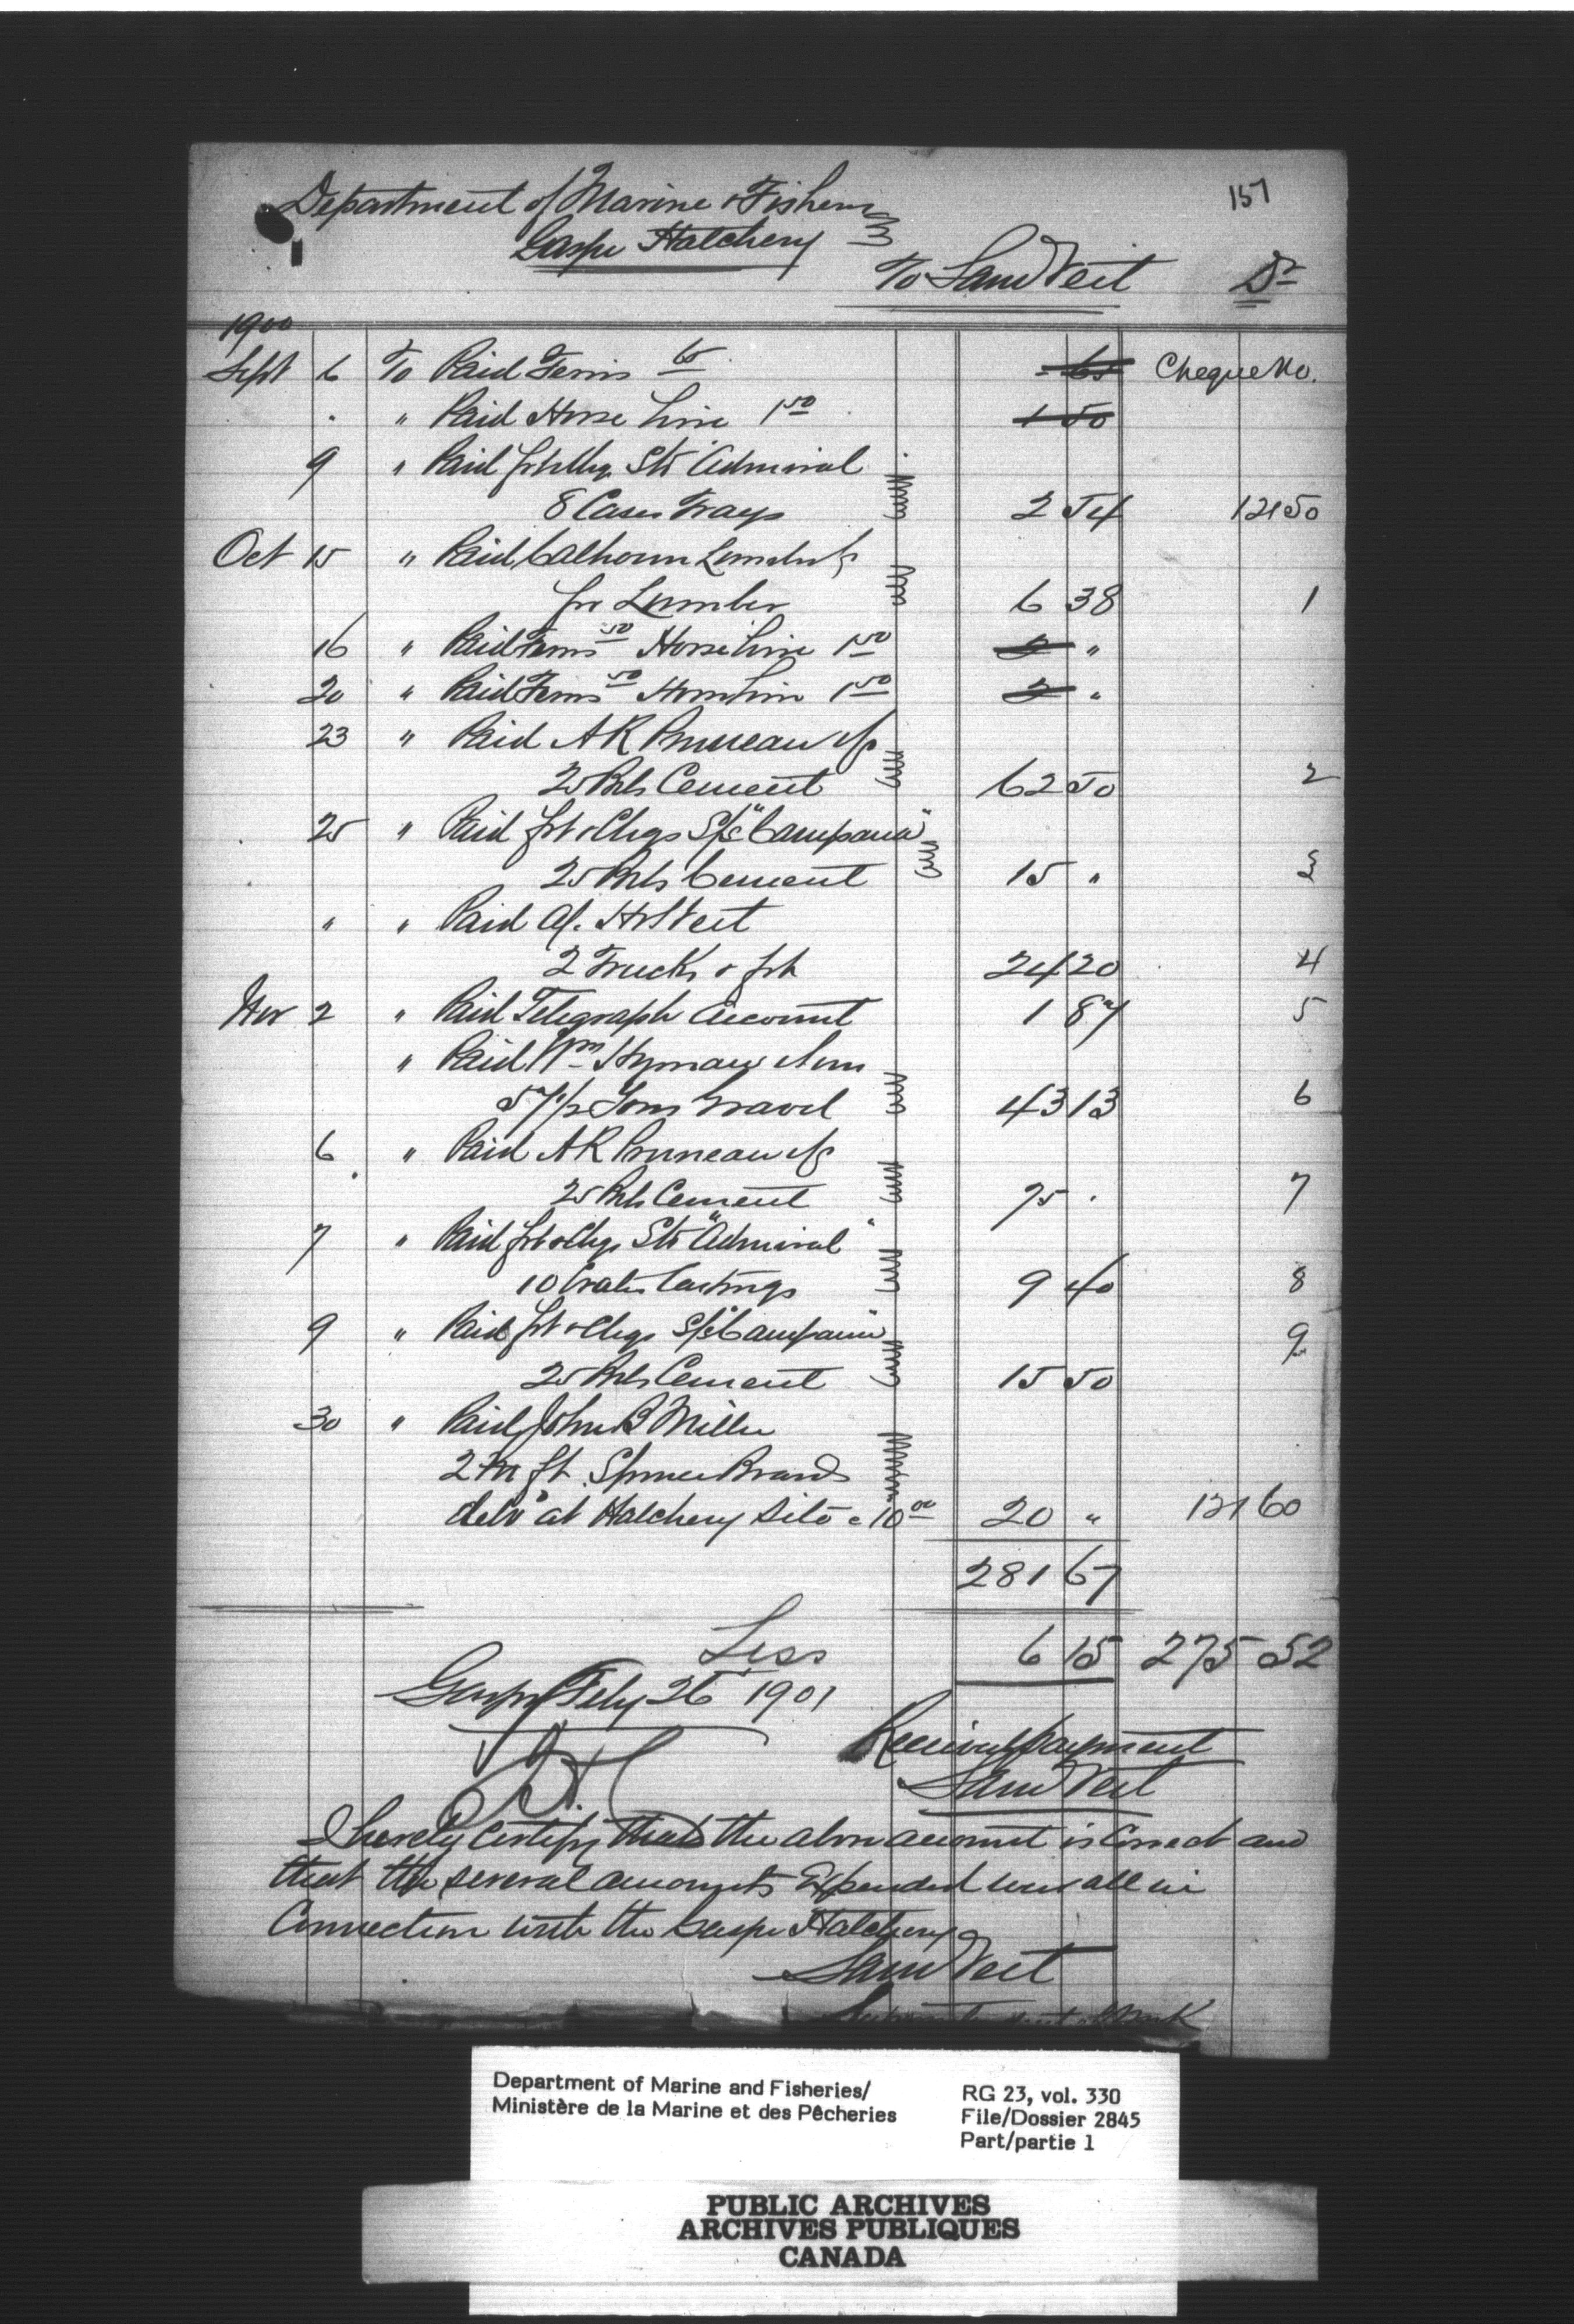 157
Department of Marine & Fisheries
Gaspe Hatchery
To Sam Veit Dr
1900
Sept 6 To Paid Ferris 65 - 65 Cheque No.
. " Paid Horse hire 1 50 1 50
9 " Paid frt & chgs Str "Admiral
8 Cases Trays 2 54 12150
Oct 15 " Paid Calhoun Lumber Co
for Lumber 6 38 1
16 " Paid Ferris 50 Horse hire 1 50 2 "
20 " Paid Ferris 50 Horse hire 1 50 2 "
23 " Paid A R Pruneau &c
25 Brls Cement 62 50 2
25 " Paid frt & Chgs S/S "Campana"
25 Brls Cement 15 " 3
" " Paid a/c Veit
2 Trucks & frt 24 20 4
Nov 2 " Paid Telegraph account 1 87 5
" Paid Wm Hyman & Sons
57 1/2 Tons Gravel 43 13 6
6 " Paid A R Pruneau &c
25 Brls Cement 75 . 7
7 " Paid frt & Chgs Str "Admiral"
10 Crates Castings 9 40 8
9 " Paid frt & Chgs S/S "Campana"
25 Brls Cement 15 50 9
30 " Paid John B Miller
2 M ft Spruce Boards
delv'd at Hatchery Site @ 10 00 20 " 12160
281 67
Less 6 15 275 52
Gaspe Feby 26 1901
Received payment
Sam Veit
I hereby Certify that the above account is Correct and
that the several amounts Expended were all in
Connection with the Gaspe Hatchery
Sam Veit
Department of Marine and Fisheries/
Ministère de la Marine et des Pêcheries
RG 23, vol. 330
File/Dossier 2845
Part/partie 1
PUBLIC ARCHIVES
ARCHIVES PUBLIQUES
CANADA